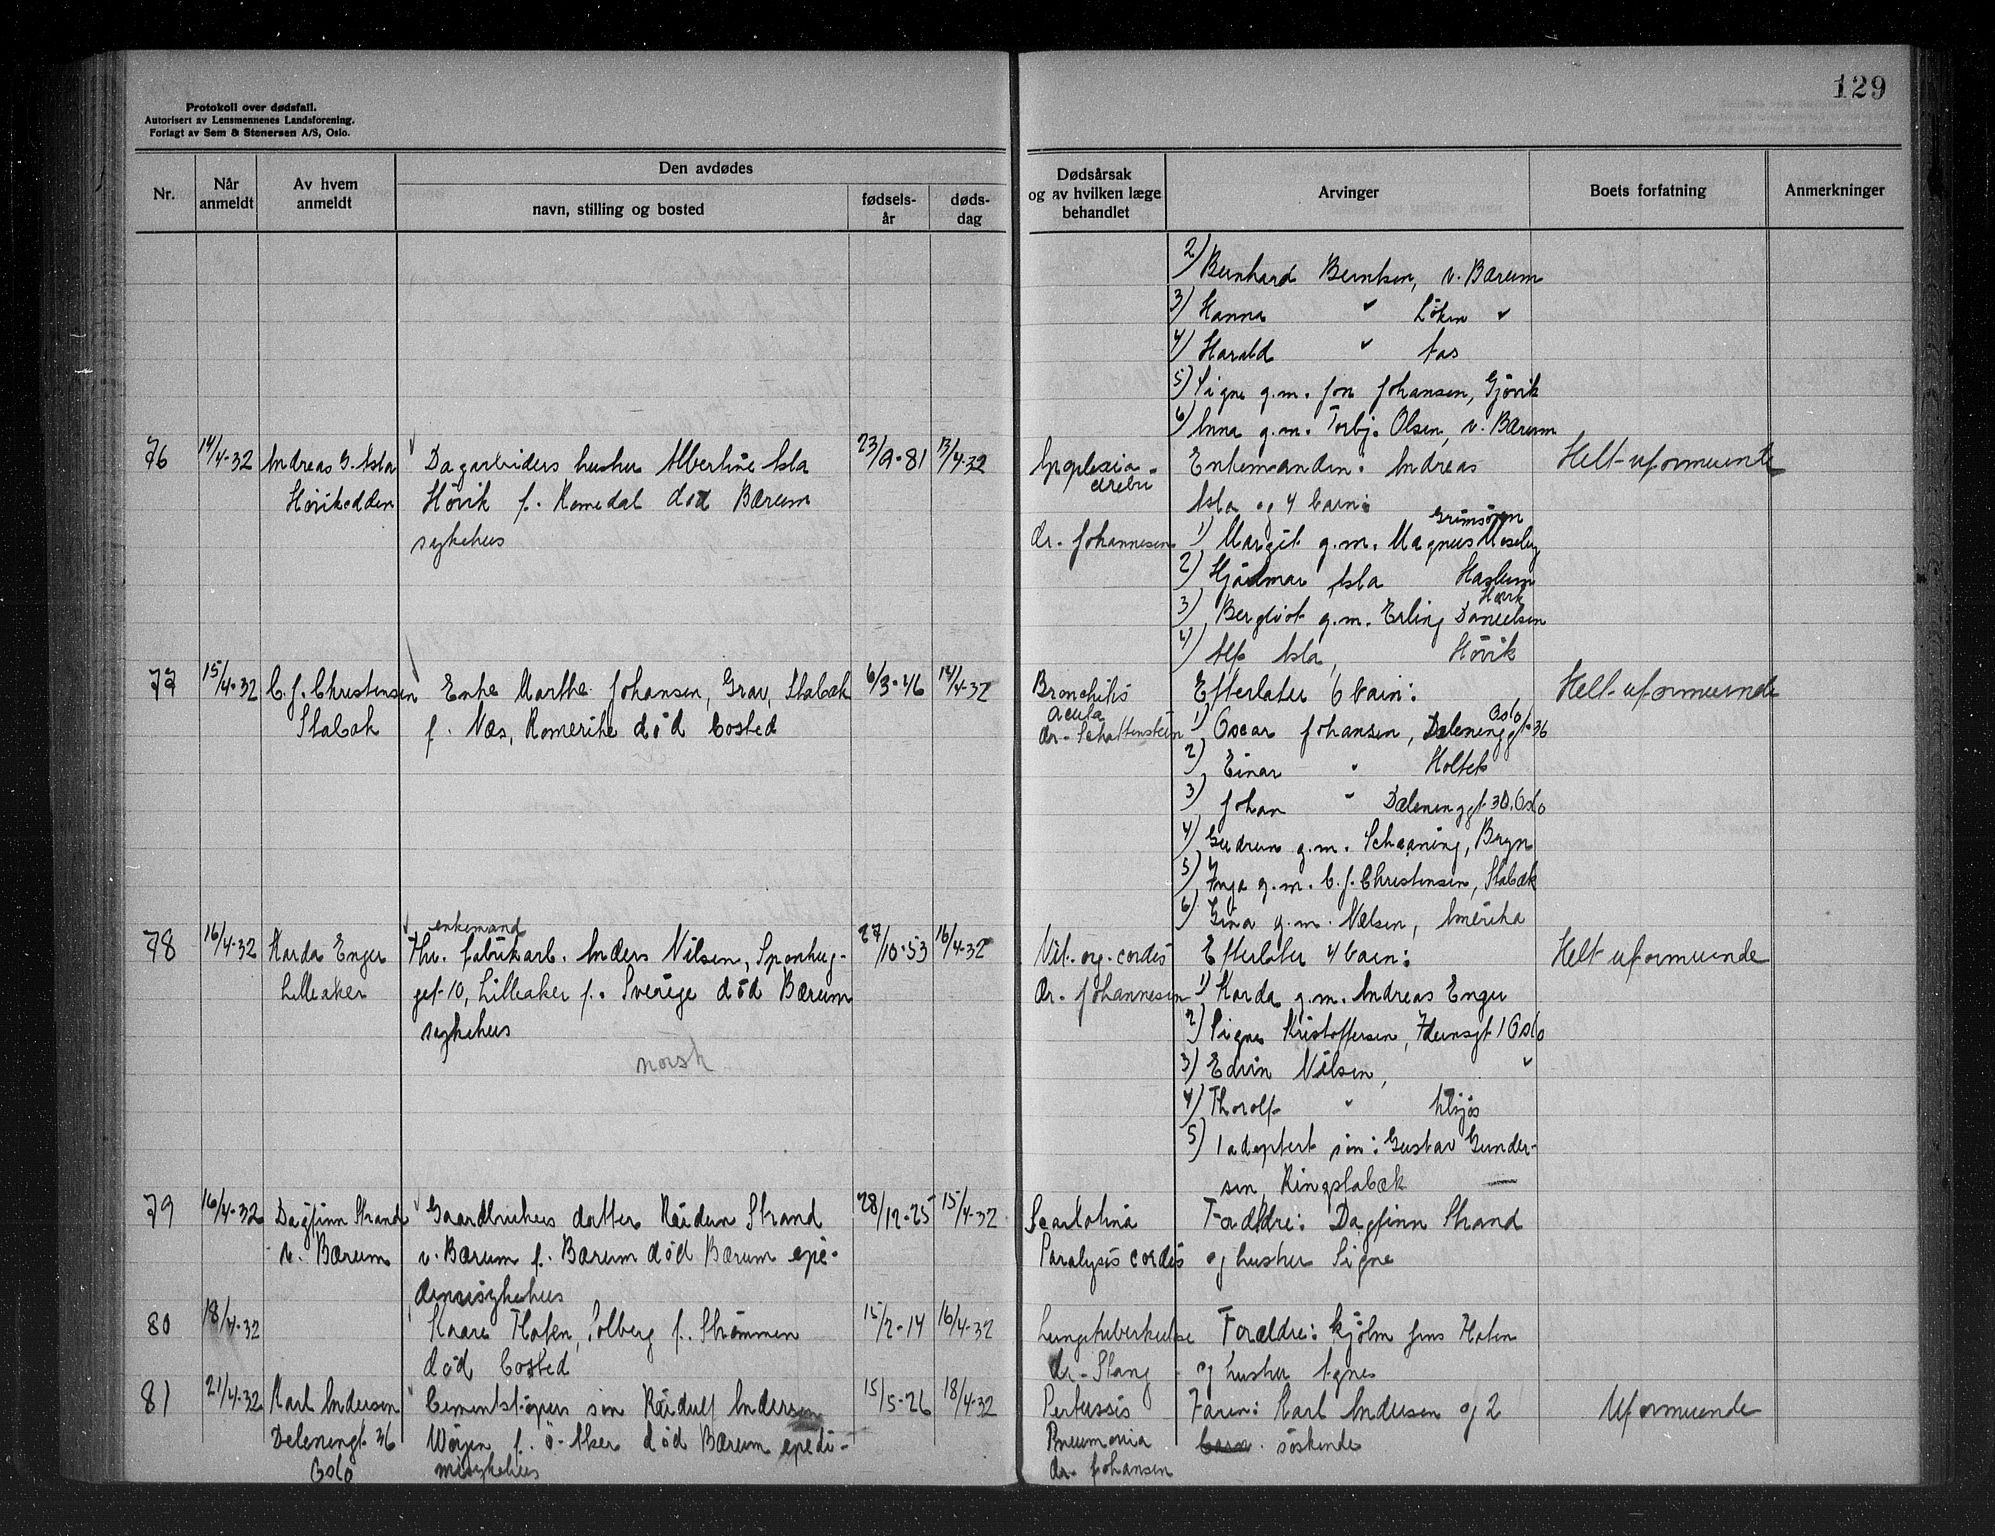 129
Protokoll over dødsfall.
Autorisert av Lensmennenes Landsforening.
Forlagt av Sem & Stenersen A/S, Oslo.
Nr.
Når anmeldt
Av hvem anmeldt
Den avdødes
navn, stilling og bosted
fødsels-år
døds-dag
Dødsårsak og av hvilken læge behandlet
Arvinger
Boets forfatning
Anmerkninger
2) Bernhard Berntsen, v. Bærum
3) Hanna " Løken "
4) Harald " Aas
5) Signe g.m. Jon Johansen, Gjøvik
6) Anna g.m. Torbj. Olsen, v. Bærum
76 14/4-32 Andreas G. Asla
Høvikodden
Dagarbeiders hustru Albertine Asla
Høvik f. Romedal død Bærum
sykehus
23/9-81 13/4-32
Apoplexia cerebri
dr. Johannesen
Enkemanden: Andreas
Asla og 4 barn:
1) Margit g.m. Magnus Moseby
Grimsøyen
2) Hjalmar Asla Haslum
3) Bergliot g.m. Erling Danielsen
Høvik
4) Alf Asla, Høvik
Helt uformuende
77 15/4-32 C.J. Christensen
Stabæk
Enke Marthe Johansen, Grav, Stabæk
f. Næs, Romerike død bosted
6/3-46 14/4-32
Bronchitis
acuta
dr. Schattenstein
Efterlater 6 barn:
1) Oscar Johansen, Dælenenggt. 36
Oslo
2) Einar " Holtek
3) Johan " Dælenenggt. 30, Oslo
4) Gudrun g.m. Schaaning, Bryn
5) Inga g.m. C.J. Christensen, Stabæk
6) Gina g.m. Nelsen, Amerika
Helt uformuende
78 16/4-32 Karda Enger
Lilleaker
enkemand
Fhv. fabrikarb. Anders Nilsen, Sponhug-
get 10, Lilleaker f. Sverige død Bærum
sykehus
norsk
27/10-53 16/4-32
Vit. org. cordis
dr. Johannesen
Efterlater 4 barn:
1) Karda g.m. Andreas Enger
2) Signe Kristoffersen, Idunsgt 1 Oslo
3) Edvin Nilsen, "
4) Thorolf "
5) 1 adoptert søn: Gustav Gunder-
sen, Ringstabæk
Helt uformuende
79 16/4-32 Dagfinn Strand
v. Bærum
Gaardbrukers datter Reidun Strand
v. Bærum f. Bærum død Bærum epi-
demisykehus
28/12-25 15/4-32
Scarlatina
Paralysis cordis
Forældre: Dagfinn Strand
og hustru Signe
80 18/4-32
Kaare Hofen, Solberg f. Strømmen
død bosted
15/2-14 16/4-32
Lungetuberkulose
dr. Stang
Forældre: Hjelm Jens Hofen
og hustru Agnes
81 21/4-32 Karl Andersen
Delenengt 36
Oslo
Cementstøpers søn Reidulf Andersen
Wøyen f. ö. Aker død Bærum epede-
misykehus
15/5-26 18/4-32
Pertussis
Pneumonia
dr. Johansen
Faren: Karl Andersen og 2
barn. søskende
Uformuende